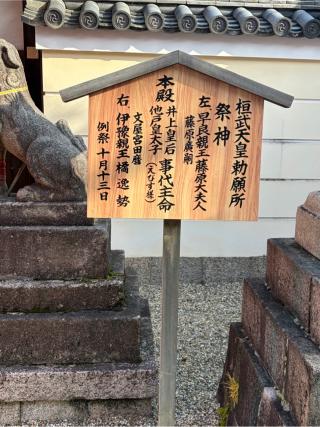 桓武天皇勅願所
祭神
左 早良親王 藤原大夫人
藤原廣嗣
本殿 井上皇后 事代主命
他戸皇太子 (えびす様)
文屋宮田麿
右 伊豫親王 橘逸勢
例祭 十月十三日